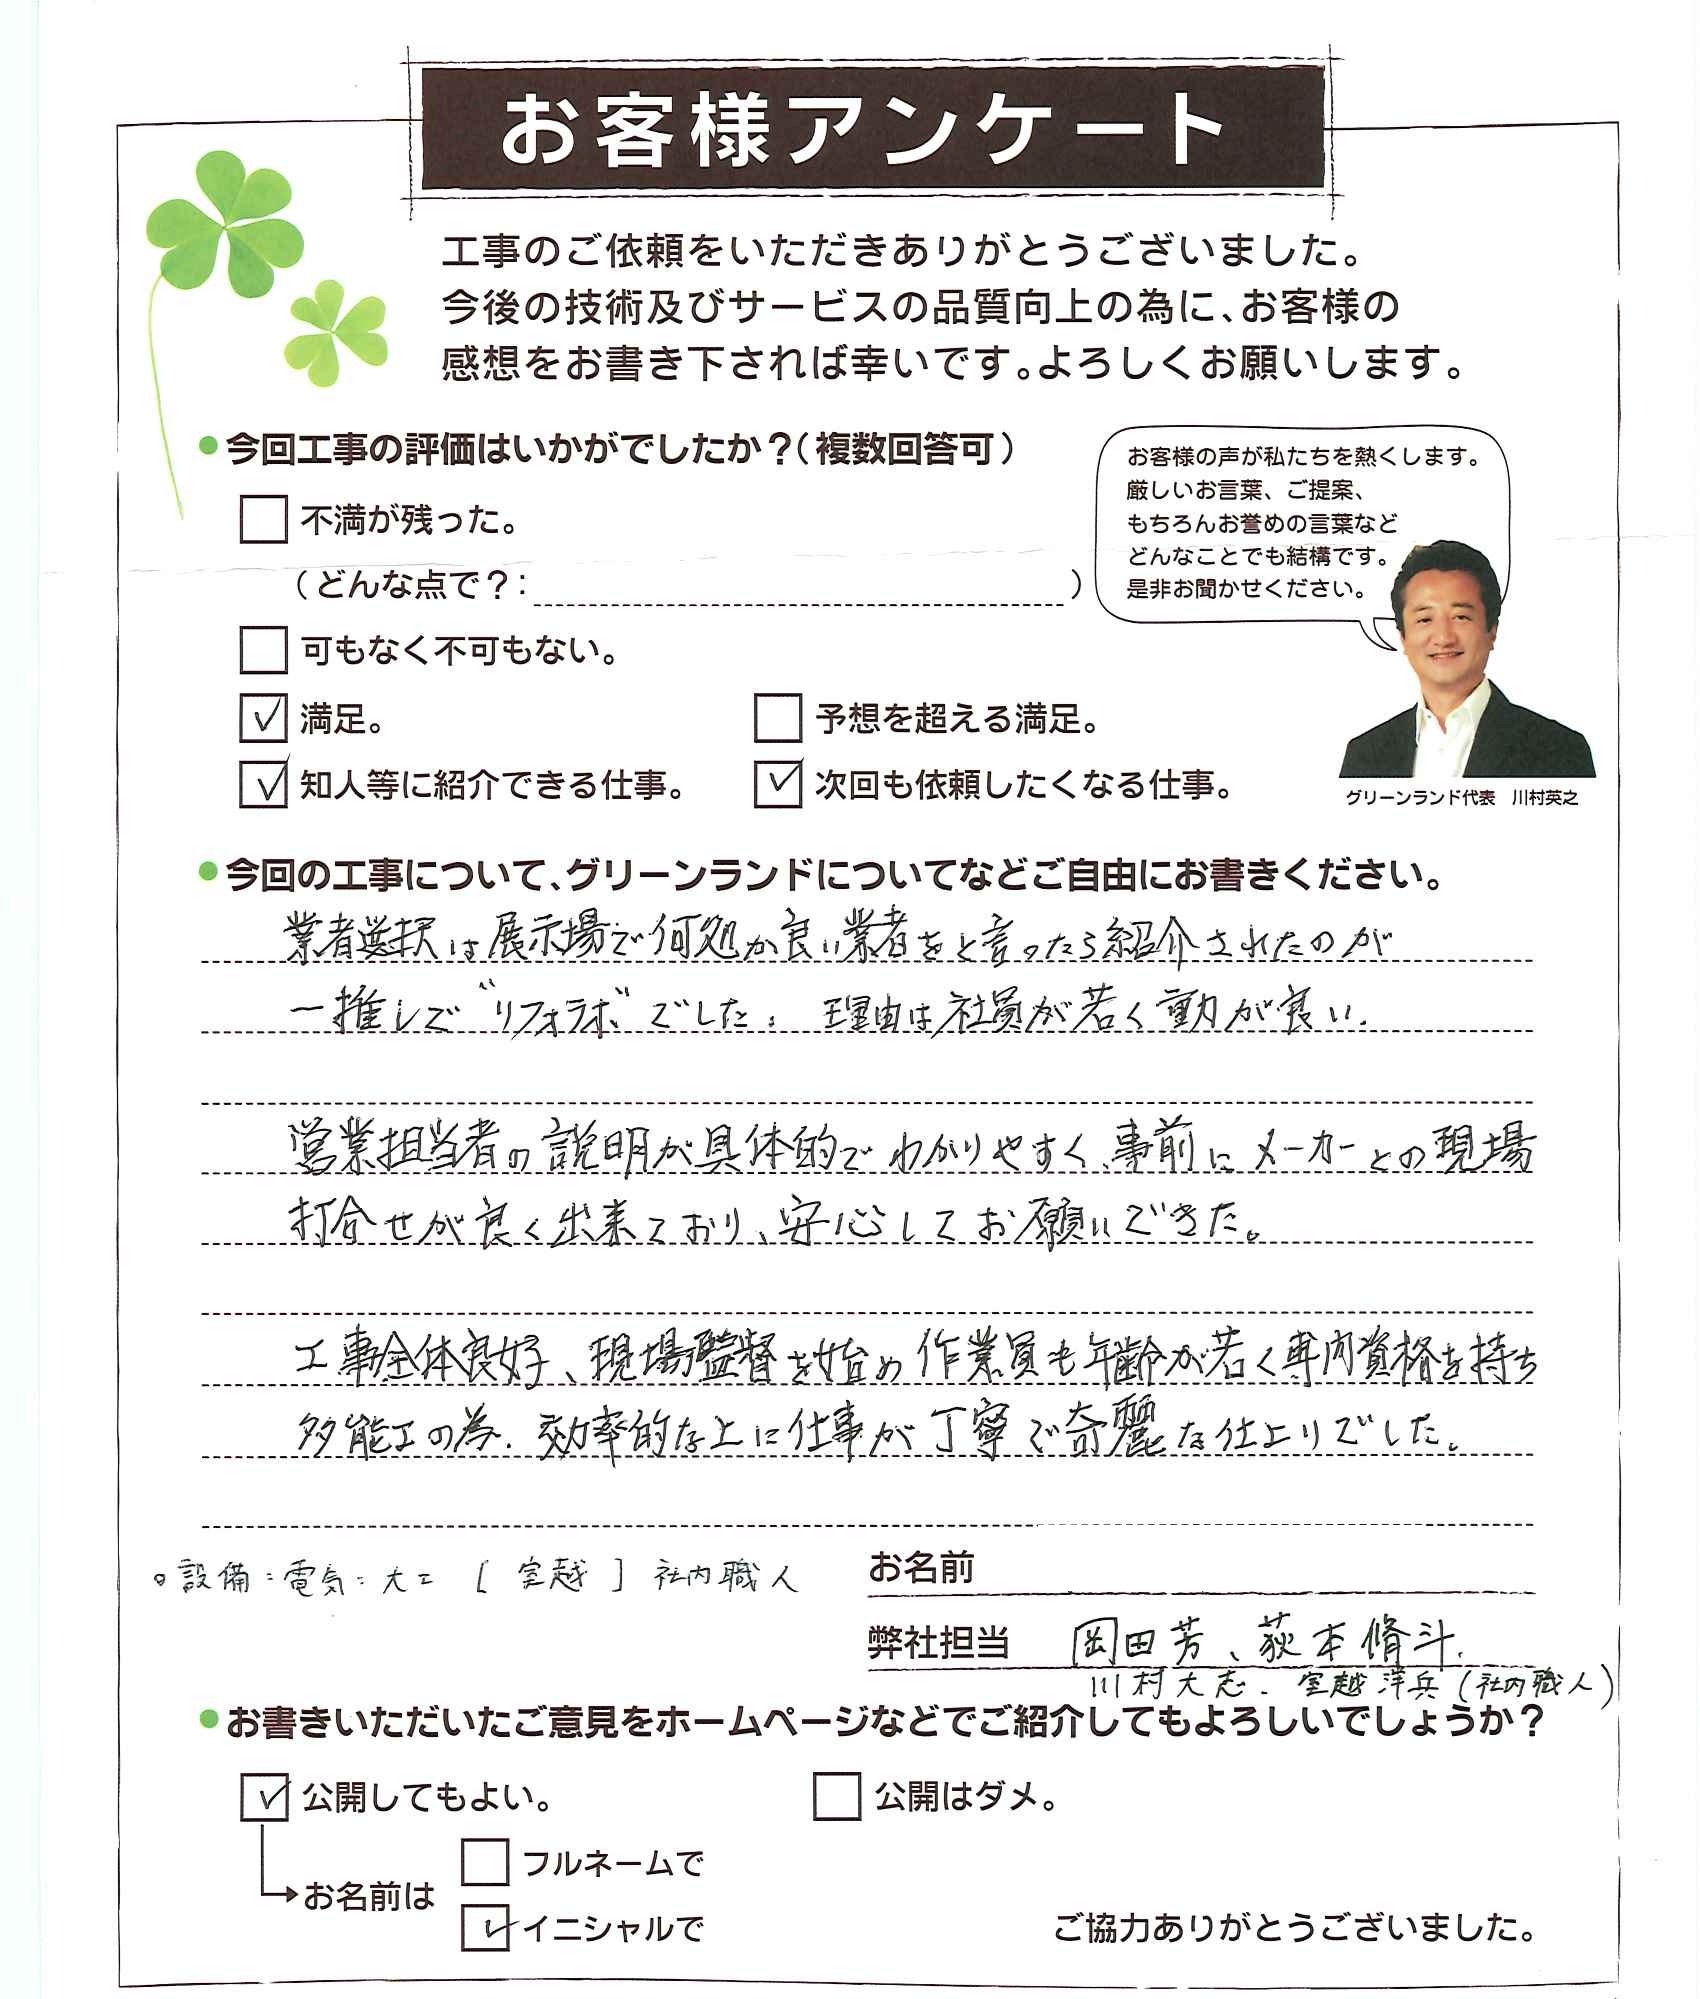 お客様アンケート
工事のご依頼をいただきありがとうございました。
今後の技術及びサービスの品質向上の為に、お客様の
感想をお書き下されば幸いです。よろしくお願いします。
●今回工事の評価はいかがでしたか？（複数回答可）
不満が残った。
（どんな点で？：　）
可もなく不可もない。
満足。
予想を超える満足。
知人等に紹介できる仕事。
次回も依頼したくなる仕事。
お客様の声が私たちを熱くします。
厳しいお言葉、ご提案、
もちろんお誉めの言葉など
どんなことでも結構です。
是非お聞かせください。
グリーンランド代表　川村英之
●今回の工事について、グリーンランドについてなどご自由にお書きください。
業者選択は展示場で何処か良い業者をと言ったら紹介されたのが
一推しで"リフォラボ"でした。理由は社員が若く動が良い.
営業担当者の説明が具体的でわかりやすく、事前にメーカーとの現場
打合せが良く出来ており、安心してお願いできた。
工事全体良好、現場監督を始め作業員も年齢が若く専門資格を持ち
多能工の為、効率的な上に仕事が丁寧で奇麗な仕上りでした。
○設備：電気：大工［室越］社内職人
お名前
弊社担当　岡田芳、荻本脩斗.
川村大志．室越洋兵（社内職人）
●お書きいただいたご意見をホームページなどでご紹介してもよろしいでしょうか？
公開してもよい。
公開はダメ。
お名前は
フルネームで
イニシャルで
ご協力ありがとうございました。